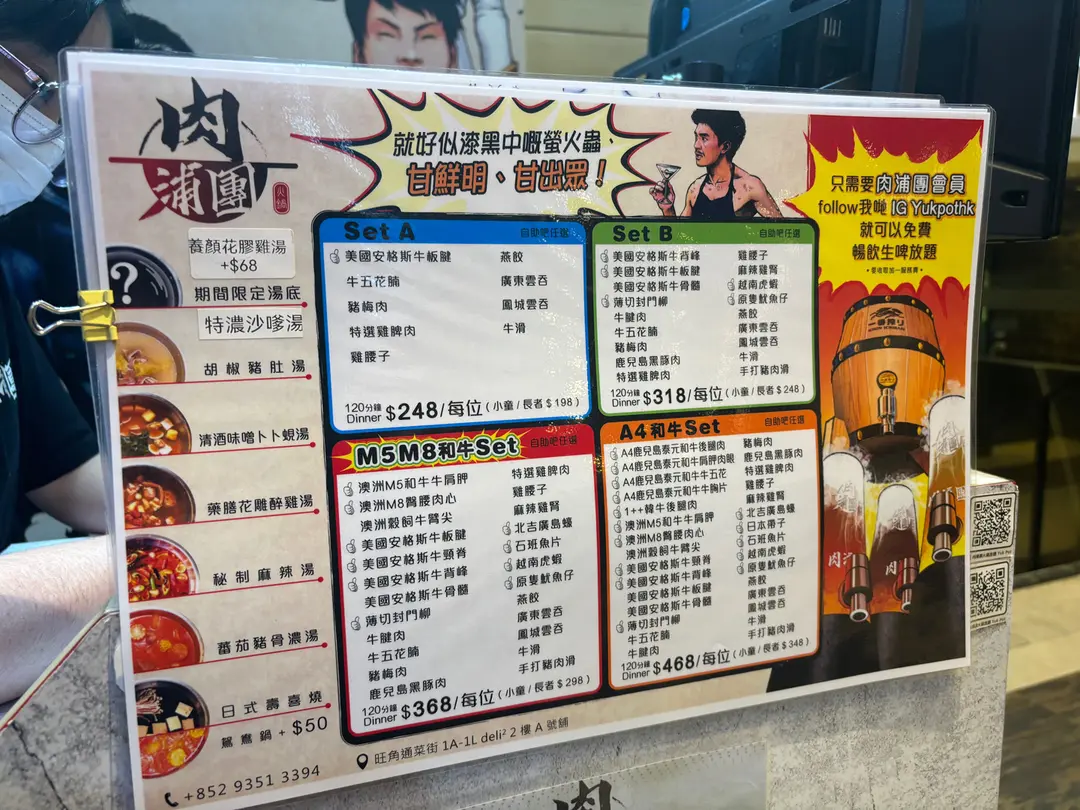 肉
浦團
火鍋
就好似漆黑中嘅螢火蟲、
甘鮮明、甘出眾！
只需要肉浦團會員
follow我哋 IG Yukpothk
就可以免費
暢飲生啤放題
養顏花膠雞湯
+$68
期間限定湯底
特濃沙嗲湯
胡椒豬肚湯
清酒味噌卜卜蜆湯
藥膳花雕醉雞湯
秘制麻辣湯
蕃茄豬骨濃湯
日式壽喜燒
鴛鴦鍋 + $50
+852 9351 3394
Set A 自助吧任選
美國安格斯牛板腱
牛五花腩
豬梅肉
特選雞脾肉
雞腰子
燕餃
廣東雲吞
鳳城雲吞
牛滑
120分鐘
Dinner $248/每位 (小童/長者 $198)
Set B 自助吧任選
美國安格斯牛背峰
美國安格斯牛板腱
美國安格斯牛骨髓
薄切封門柳
牛腱肉
牛五花腩
豬梅肉
鹿兒島黑豚肉
特選雞脾肉
雞腰子
麻辣雞腎
越南虎蝦
原隻魷魚仔
燕餃
廣東雲吞
鳳城雲吞
牛滑
手打豬肉滑
120分鐘
Dinner $318/每位 (小童/長者 $248)
M5M8和牛Set 自助吧任選
澳洲M5和牛牛肩胛
澳洲M8臀腰肉心
澳洲穀飼牛臂尖
美國安格斯牛板腱
美國安格斯牛頸脊
美國安格斯牛背峰
美國安格斯牛骨髓
薄切封門柳
牛腱肉
牛五花腩
豬梅肉
鹿兒島黑豚肉
特選雞脾肉
雞腰子
麻辣雞腎
北吉廣島蠔
石班魚片
越南虎蝦
原隻魷魚仔
燕餃
廣東雲吞
鳳城雲吞
牛滑
手打豬肉滑
120分鐘
Dinner $368/每位 (小童/長者 $298)
A4和牛Set 自助吧任選
A4鹿兒島泰元和牛後腿肉
A4鹿兒島泰元和牛肩胛肉眼
A4鹿兒島泰元和牛牛五花
A4鹿兒島泰元和牛牛胸片
1++韓牛後腿肉
澳洲M5和牛牛肩胛
澳洲M8臀腰肉心
澳洲穀飼牛臂尖
美國安格斯牛頸脊
美國安格斯牛背峰
美國安格斯牛板腱
美國安格斯牛骨髓
薄切封門柳
牛五花腩
牛腱肉
豬梅肉
鹿兒島黑豚肉
特選雞脾肉
雞腰子
麻辣雞腎
北吉廣島蠔
日本帶子
石班魚片
越南虎蝦
原隻魷魚仔
燕餃
廣東雲吞
鳳城雲吞
牛滑
手打豬肉滑
120分鐘
Dinner $468/每位 (小童/長者 $348)
旺角通菜街 1A-1L deli² 2 樓 A 號舖
一番搾り
肉
肉